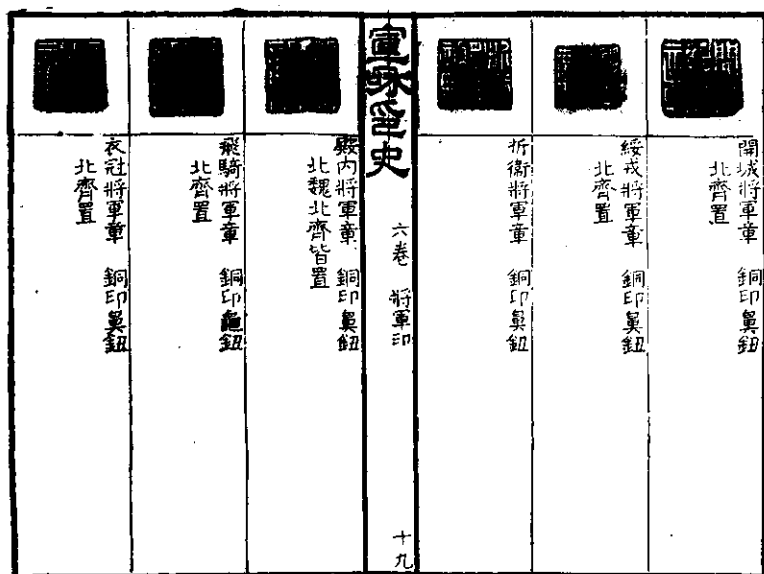 開城將軍章 銅印鼻鈕
北齊置
綏戎將軍章 銅印鼻鈕
北齊置
折衝將軍章 銅印鼻鈕
宣和印史 六卷 將軍印 十九
殿内將軍章 銅印鼻鈕
北魏北齊皆置
飛騎將軍章 銅印龜鈕
北齊置
衣冠將軍章 銅印鼻鈕
北齊置